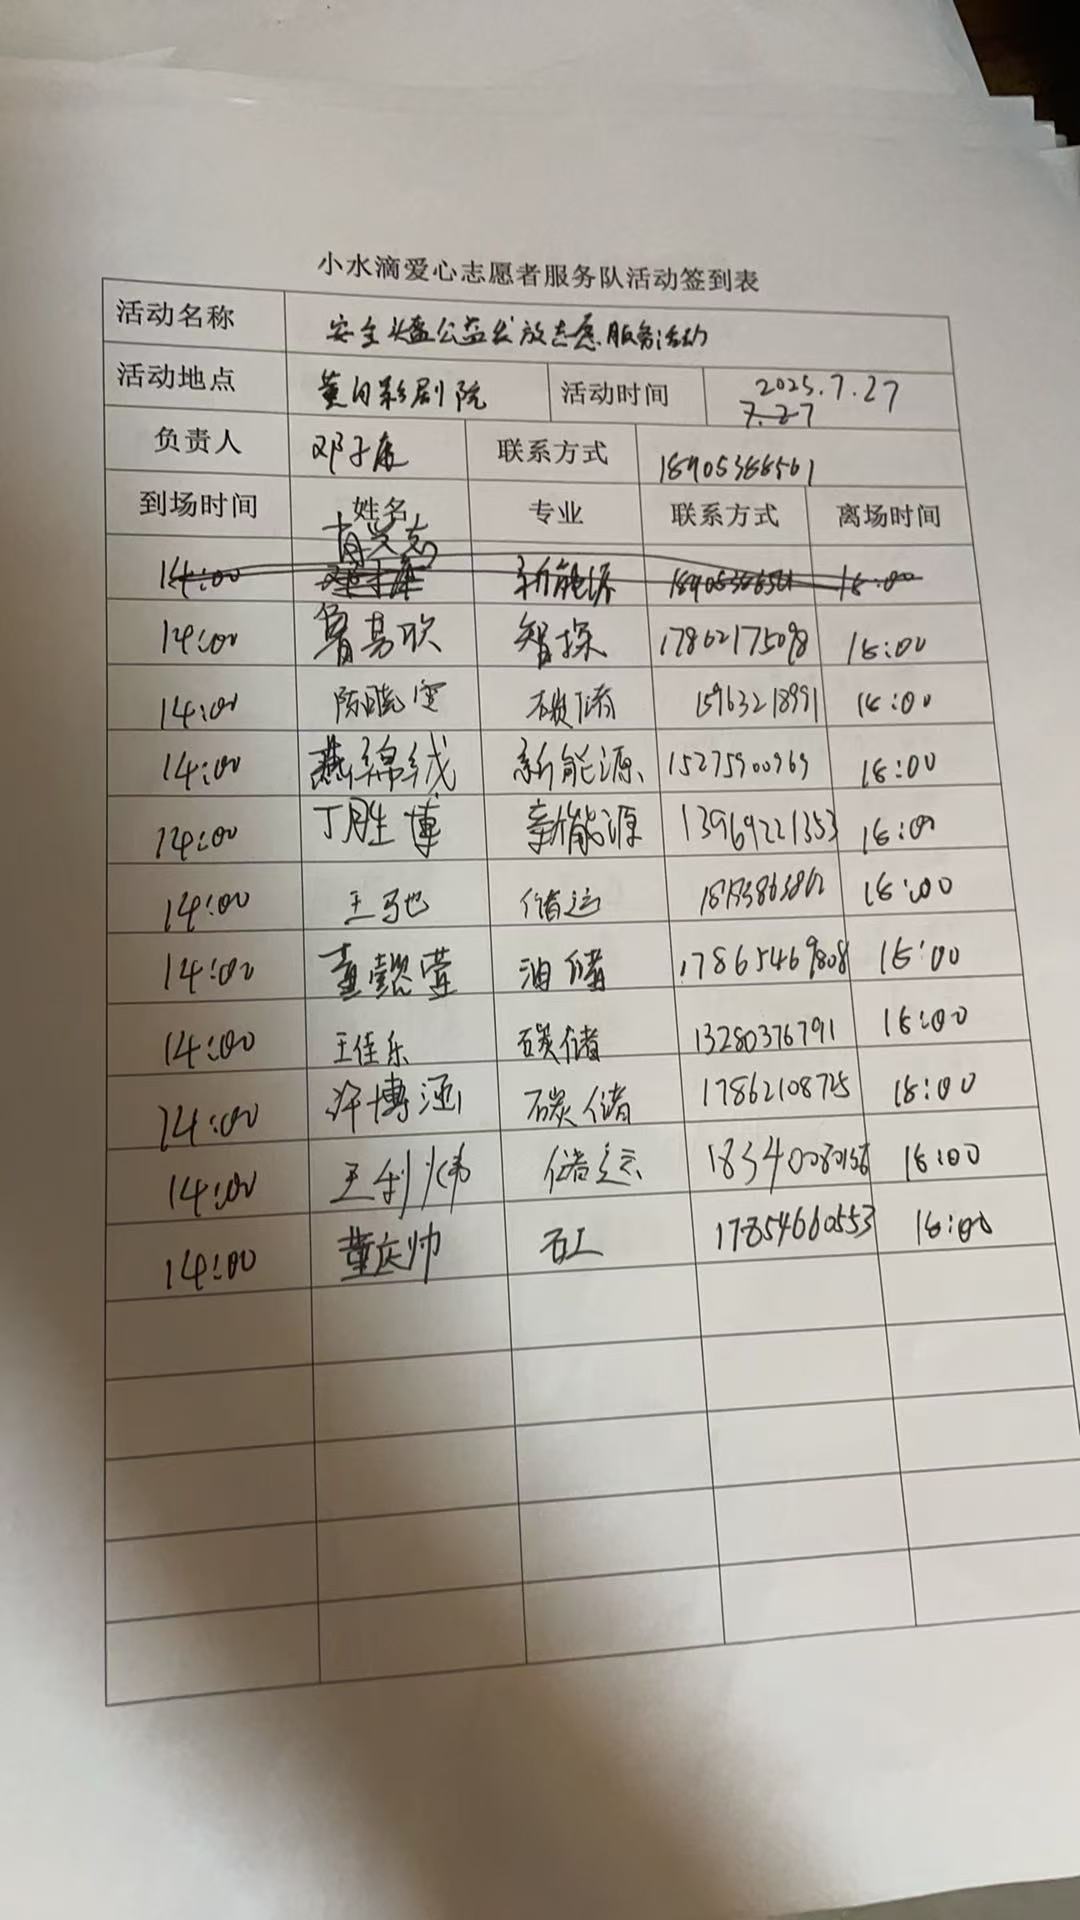 小水滴爱心志愿者服务队活动签到表
活动名称 安全头盔公益发放志愿服务活动
活动地点 黄日影剧院 活动时间 2025.7.27
7.27
负责人 邓子康 联系方式 18905388561
到场时间 姓名 专业 联系方式 离场时间
14:00 邓子康 新能源 18905388561 18:00
14:00 鲁易欣 智探 17862175098 18:00
14:00 陈晓雯 碳储 15963218991 18:00
14:00 燕绵绒 新能源 15275900969 18:00
14:00 丁胜博 新能源 13969221353 18:00
14:00 王驰 储运 18:00
14:00 董懿萱 油储 17865469808 18:00
14:00 王佳乐 碳储 13280376791 18:00
14:00 许博涵 碳储 17862108725 18:00
14:00 王利炜 储运 18:00
14:00 董庆帅 石工 17854660553 18:00